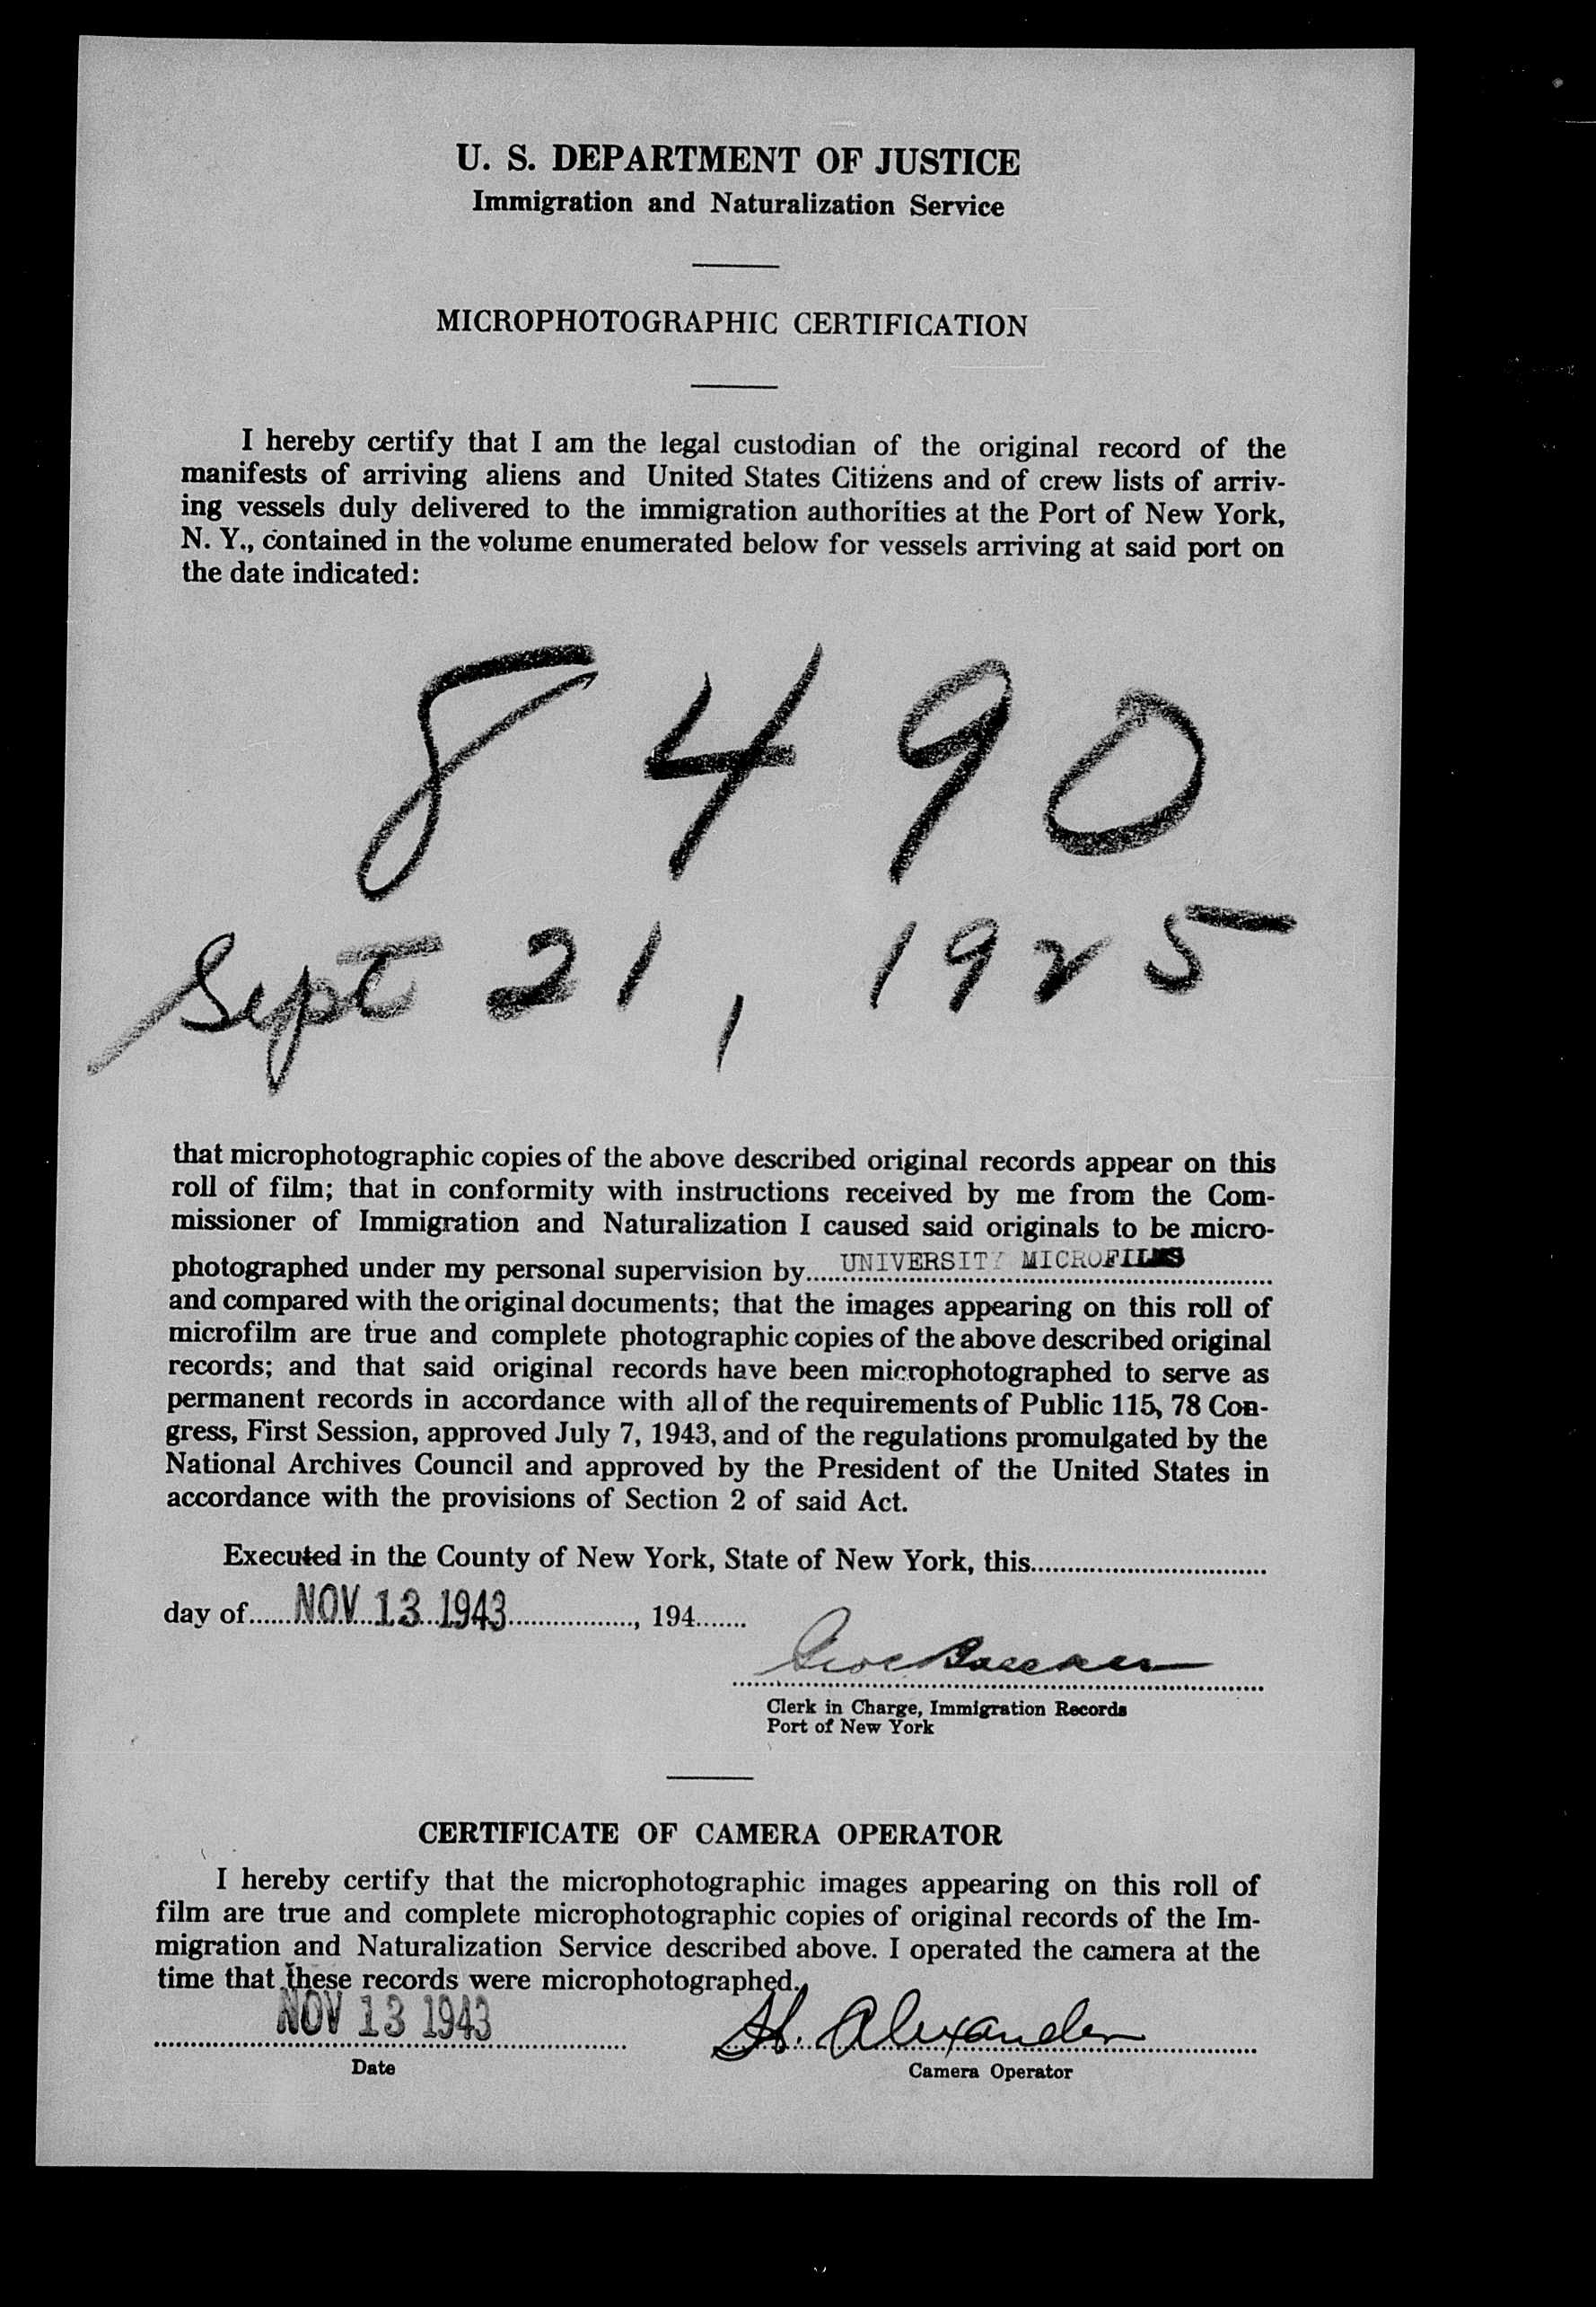 U. S. DEPARTMENT OF JUSTICE
Immigration and Naturalization Service
MICROPHOTOGRAPHIC CERTIFICATION
I hereby certify that I am the legal custodian of the original record of the
manifests of arriving aliens and United States Citizens and of crew lists of arriv-
ing vessels duly delivered to the immigration authorities at the Port of New York,
N. Y., contained in the volume enumerated below for vessels arriving at said port on
the date indicated:
8490
Sept 21, 1925
that microphotographic copies of the above described original records appear on this
roll of film; that in conformity with instructions received by me from the Com-
missioner of Immigration and Naturalization I caused said originals to be micro-
photographed under my personal supervision by UNIVERSITY MICROFILMS
and compared with the original documents; that the images appearing on this roll of
microfilm are true and complete photographic copies of the above described original
records; and that said original records have been microphotographed to serve as
permanent records in accordance with all of the requirements of Public 115, 78 Con-
gress, First Session, approved July 7, 1943, and of the regulations promulgated by the
National Archives Council and approved by the President of the United States in
accordance with the provisions of Section 2 of said Act.
Executed in the County of New York, State of New York, this
day of NOV 13 1943, 194
Clerk in Charge, Immigration Records
Port of New York
CERTIFICATE OF CAMERA OPERATOR
I hereby certify that the microphotographic images appearing on this roll of
film are true and complete microphotographic copies of original records of the Im-
migration and Naturalization Service described above. I operated the camera at the
time that these records were microphotographed.
NOV 13 1943 H. Alexander
Date Camera Operator